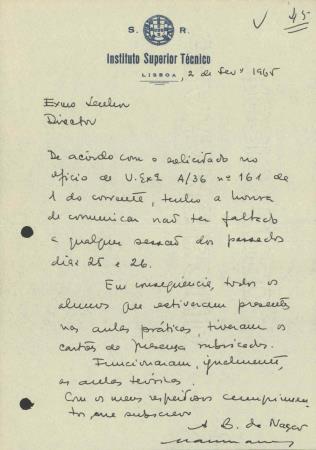 V 45
S. R.
Instituto Superior Técnico
LISBOA, 2 de Fevº 1965
Exmo Senhor
Director
De acôrdo com o solicitado no
ofício de V. Exª A/36 nº 161 de
1 do corrente, tenho a honra
de comunicar não ter faltado
a qualquer sessão dos passados
dias 25 e 26.
Em consequência, todos os
alunos que estiveram presentes
nas aulas práticas, tiveram os
cartões de presença rubricados.
Funcionaram, igualmente,
as aulas teóricas.
Com os meus respeitosos cumprimen-
tos, me subscrevo
A B. de